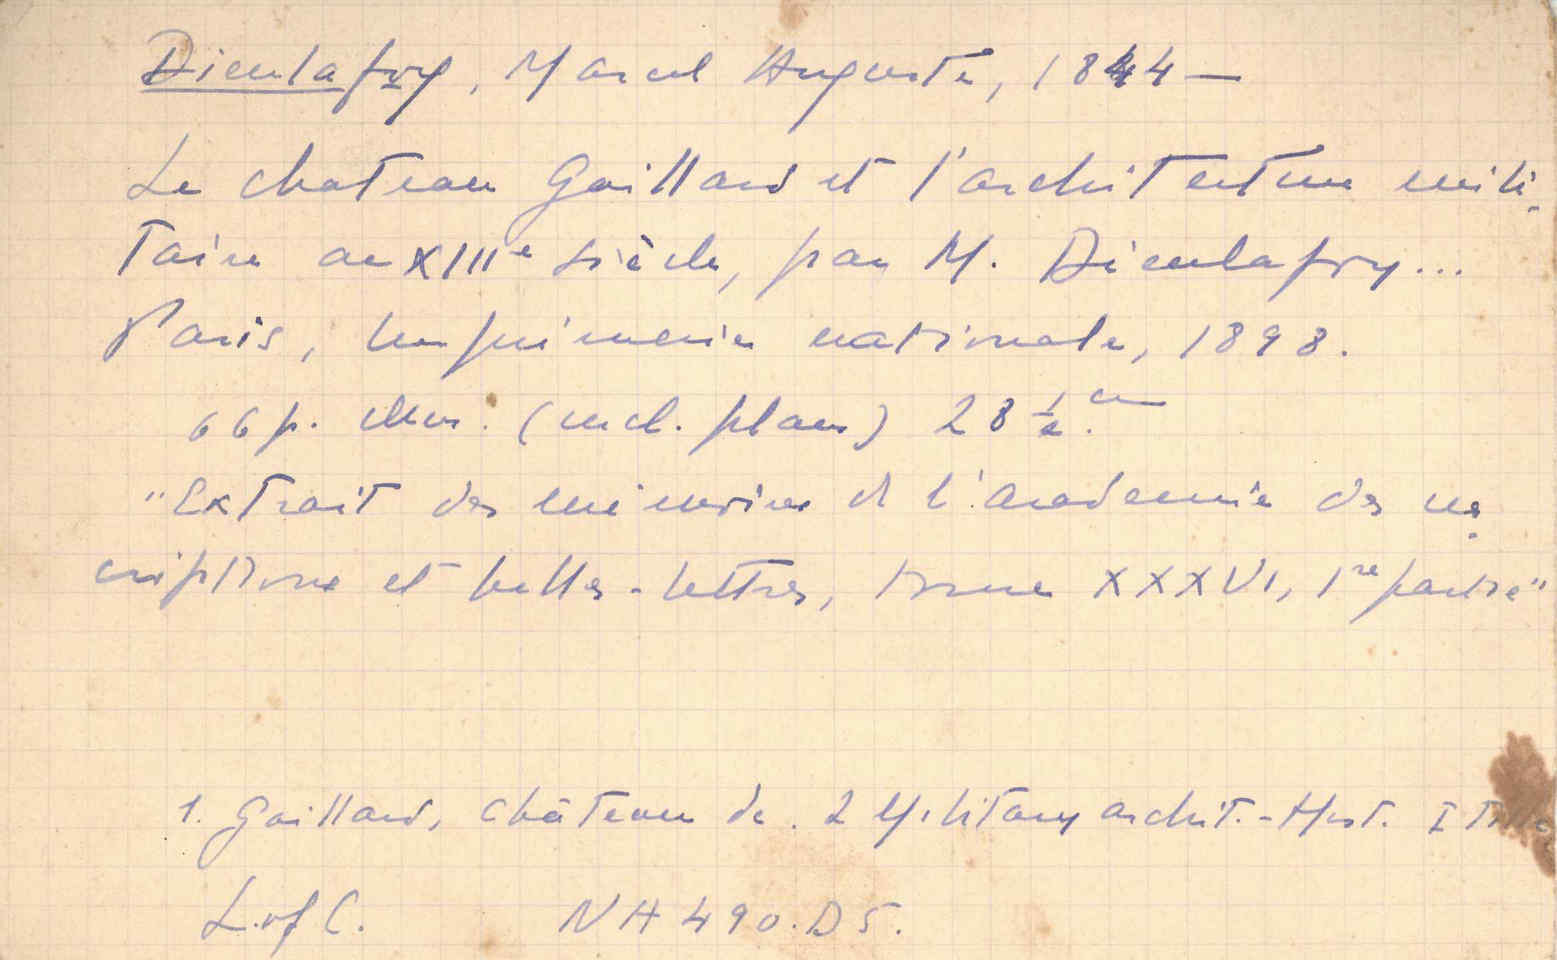 Dieulafoy, Marcel Auguste, 1844 —
Le chateau Gaillard et l'architecture mili-
taire au XIIIe siècle, par M. Dieulafoy...
Paris, Imprimerie nationale, 1898.
66 p. illus. (incl. plans) 28 ½ cm.
"Extrait des mémoires de l'academie des ins-
criptions et belles-lettres, tome XXXVI, 1re partie"
1. Gaillard, Château de. 2 Military archit.-Hist. I Title
L. of C. NH 490.D5.